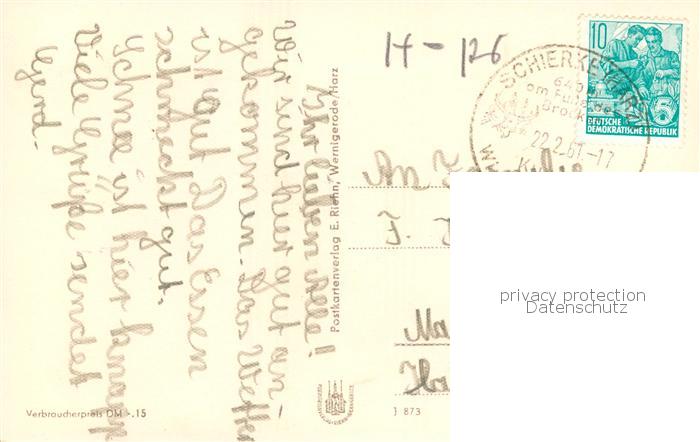 Ihr lieben alle!
Wir sind hier gut an-
gekommen. Das Wetter
ist gut Das Essen
schmeckt gut.
Schnee ist hier knapp
Viele Grüße sendet
Gerd.
Postkartenverlag E. Riehn, Wernigerode/Harz
H - 126
SCHIERKE/HARZ
am Fuße des
22.2.61.-17
10
5
DEUTSCHE
DEMOKRATISCHE REPUBLIK
An
F.
Ma
privacy protection
Datenschutz
Verbraucherpreis DM -.15
J 873